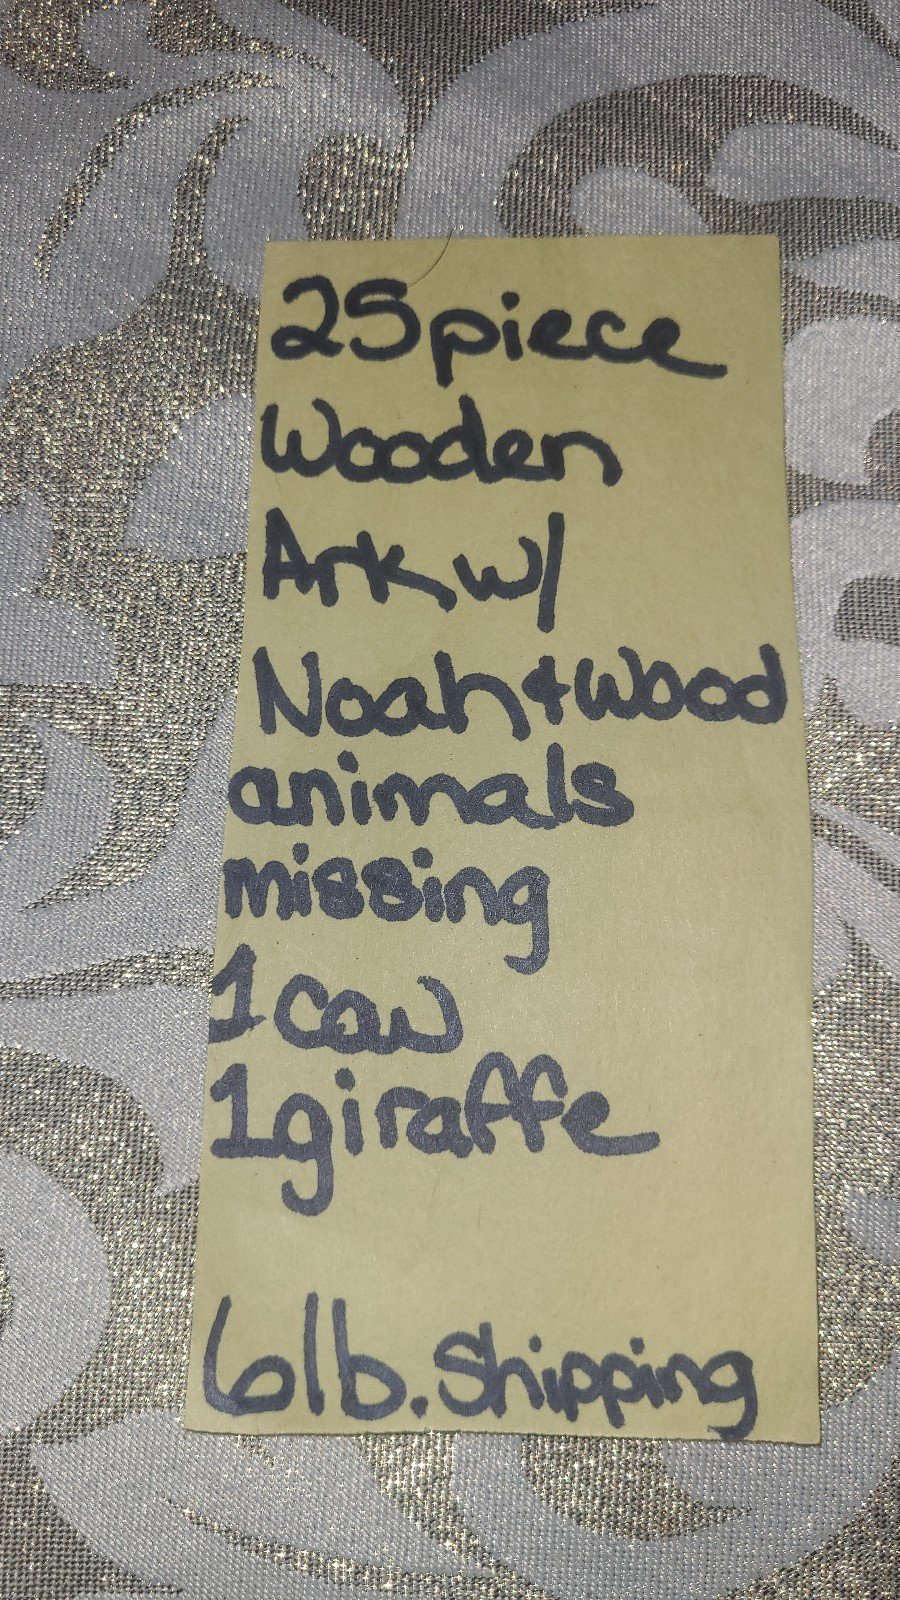 25piece
Wooden
Ark w/
Noah + Wood
animals
missing
1 cow
1 giraffe
6lb. Shipping